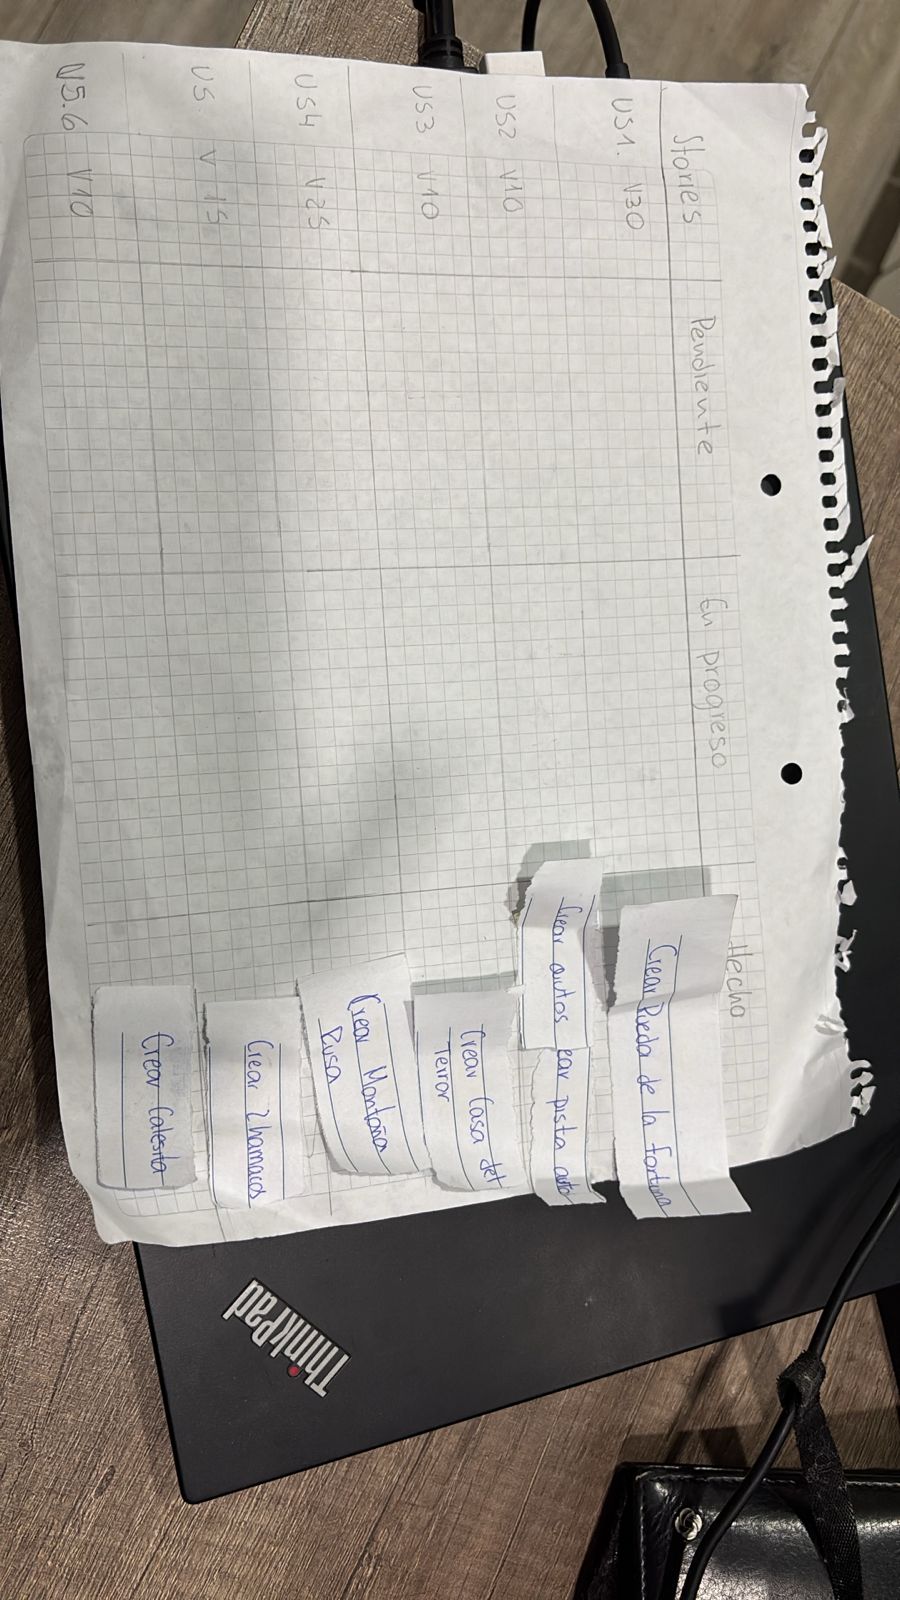 Stories Pendiente En progreso Hecho
US1. V30
Crear Rueda de la fortuna
US2 V10
Crear autos
ear pista auto
US3 V10
Crear Casa del
Terror
US4 V25
Crear Montaña
Rusa
US V 15
Crear 2 hamacas
US.6 V10
Crear Calesita
ThinkPad